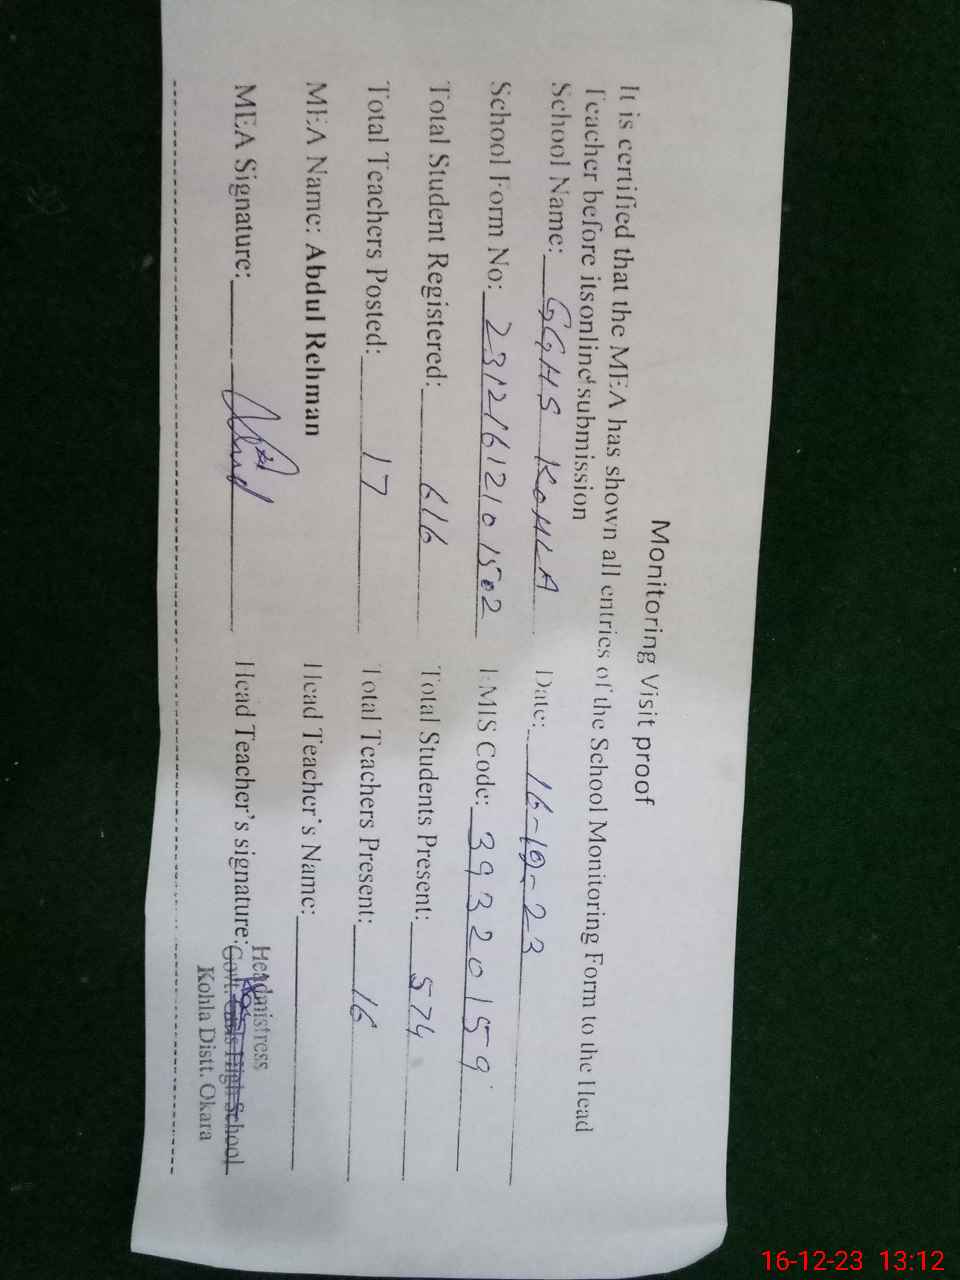 Monitoring Visit proof
It is certified that the MEA has shown all entries of the School Monitoring Form to the Head
Teacher before itsonline submission
School Name: GGHS KOHLA Date: 16-12-23
School Form No: 23121612101502 EMIS Code: 39320159
Total Student Registered: 616 Total Students Present: 574
Total Teachers Posted: 17 Total Teachers Present: 16
MEA Name: Abdul Rehman Head Teacher's Name:
MEA Signature: Head Teacher's signature:
Headmistress
Govt. Girls High School
Kohla Distt. Okara
16-12-23 13:12